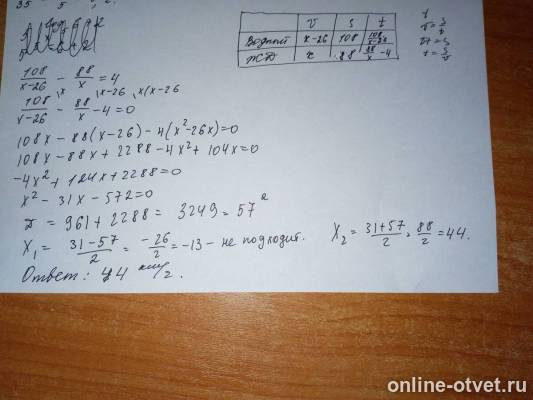 v s t
Водный x-26 108 108/x-26
ЖД x 88 88/x - 4
v = s/t
vt = s
t = s/v
108/x-26 - 88/x = 4
108/x-26 - 88/x - 4 = 0
108x - 88(x-26) - 4(x²-26x) = 0
108x - 88x + 2288 - 4x² + 104x = 0
-4x² + 124x + 2288 = 0
x² - 31x - 572 = 0
D = 961 + 2288 = 3249 = 57²
X₁ = 31-57/2 = -26/2 = -13 - не подходит. X₂ = 31+57/2 = 88/2 = 44.
Ответ: 44 км/ч.
online-otvet.ru